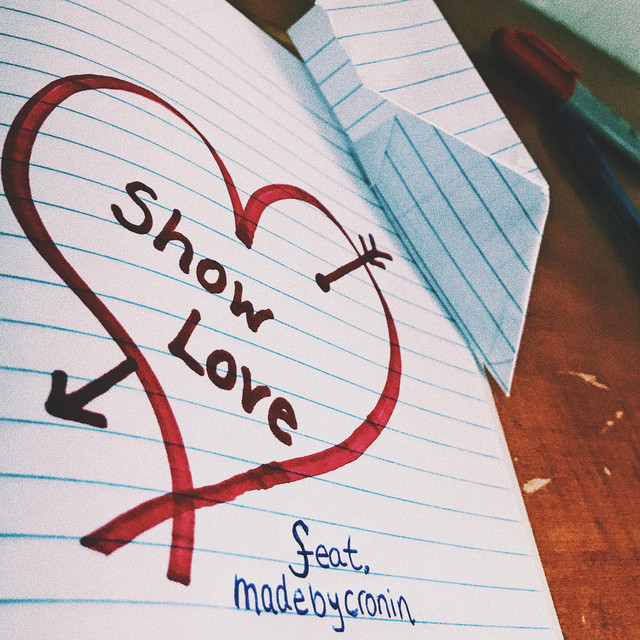 Show
Love
feat.
madebycronin